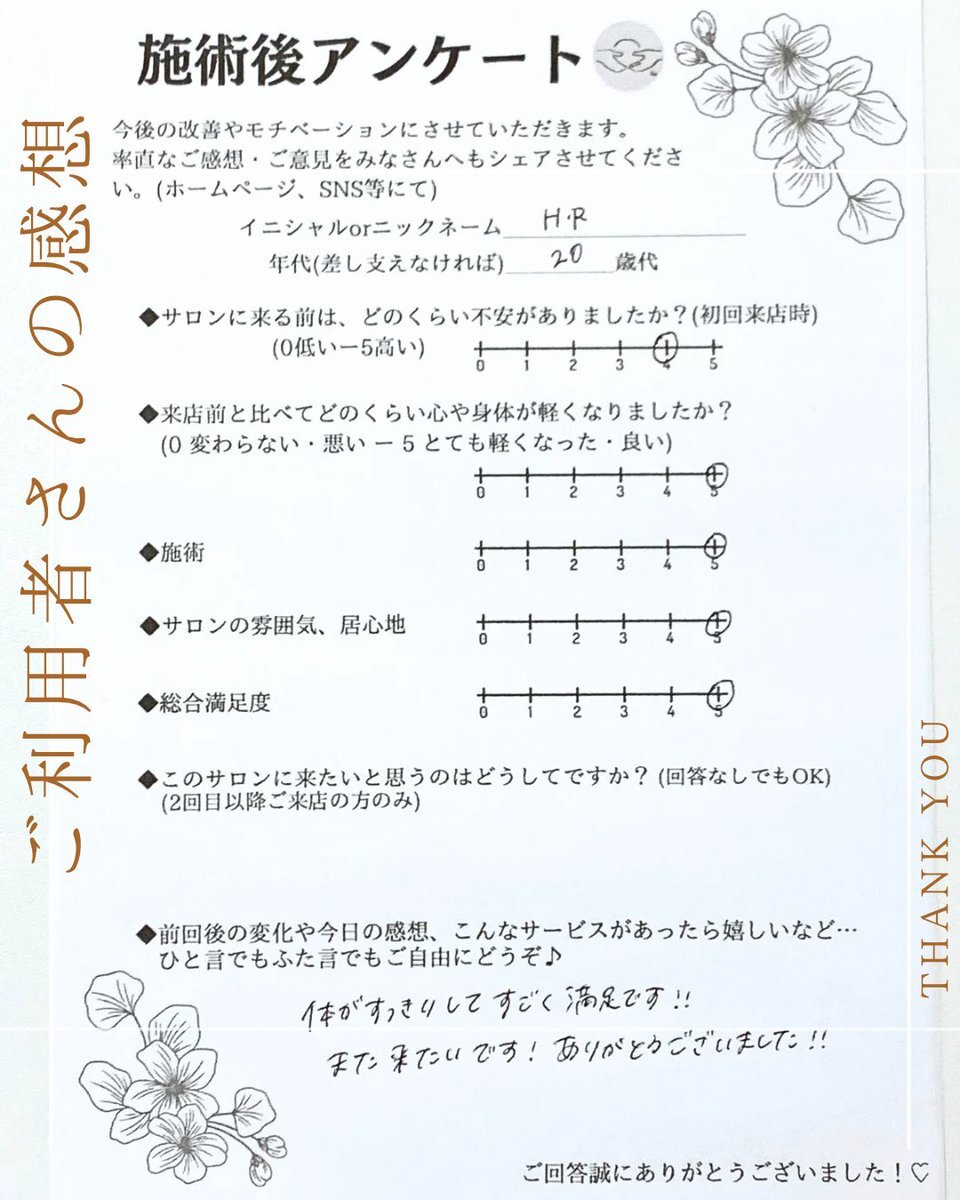 施術後アンケート
今後の改善やモチベーションにさせていただきます。
率直なご感想・ご意見をみなさんへもシェアさせてくださ
い。(ホームページ、SNS等にて)
イニシャルorニックネーム H.R
年代(差し支えなければ) 20 歳代
◆サロンに来る前は、どのくらい不安がありましたか？(初回来店時)
(0低いー5高い)
0 1 2 3 4 5
◆来店前と比べてどのくらい心や身体が軽くなりましたか？
(0 変わらない・悪い ー 5 とても軽くなった・良い)
0 1 2 3 4 5
◆施術
0 1 2 3 4 5
◆サロンの雰囲気、居心地
0 1 2 3 4 5
◆総合満足度
0 1 2 3 4 5
◆このサロンに来たいと思うのはどうしてですか？(回答なしでもOK)
(2回目以降ご来店の方のみ)
◆前回後の変化や今日の感想、こんなサービスがあったら嬉しいなど…
ひと言でもふた言でもご自由にどうぞ♪
体がすっきりしてすごく満足です!!
また来たいです！ありがとうございました!!
ご回答誠にありがとうございました！♡
ご利用者さんの感想
THANK YOU